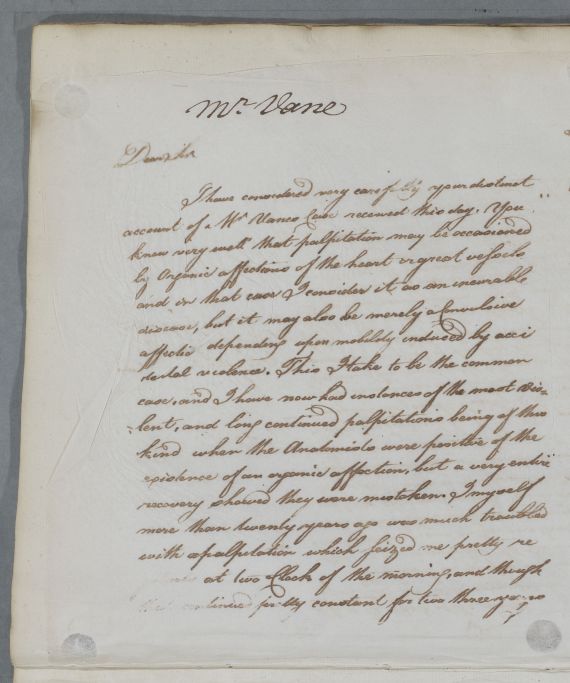 Mr. Vane
Dear Sir
I have considered very carefully your distinct
account of Mr Vanes Case received this day. You
know very well that palpitation may be occasioned
by Organic affections of the heart or great vessels
and in that case I consider it as an incurable
disease, but it may also be merely a Convulsive
affectio depending upon mobility induced by acci
dental violence. This I take to be the common
case, and I have now had instances of the most vio-
-lent, and long continued palpitations being of this
kind when the Anatomists were positive of the
existence of an organic affection, but a very entire
recovery showed they were mistaken. I myself
more than twenty years ago was much troubled
with a palpitation which seized me pretty re
at two Clock of the morning, and though
continued pretty constant for two three years